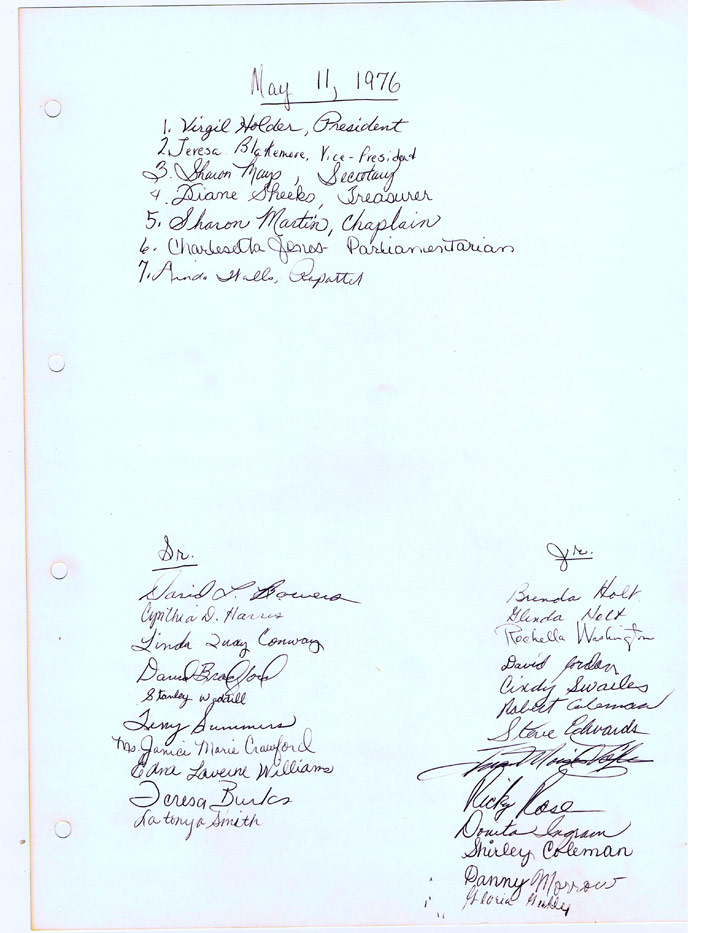 May 11, 1976
1. Virgil Holder, President
2. Teresa Blakemore, Vice-President
3. Sharon Mays, Secretary
4. Diane Sheeks, Treasurer
5. Sharon Martin, Chaplain
6. Charlesetta Jones- Parliamentarian
7. Walls, Reporter
Sr.
David L Bowers
Cynthia D. Harris
Linda Quay Conway
David Bradford
Stanley
Terry Summers
Ms. Janice Marie Crawford
Edna Laverne Williams
Teresa Burks
Latonya Smith
Jr.
Brenda Holt
Glenda Holt
Rochella Washington
David Jordan
Cindy Swailes
Robert Coleman
Steve Edwards
Ricky Rose
Donita Ingram
Shirley Coleman
Danny Morrow
Gloria